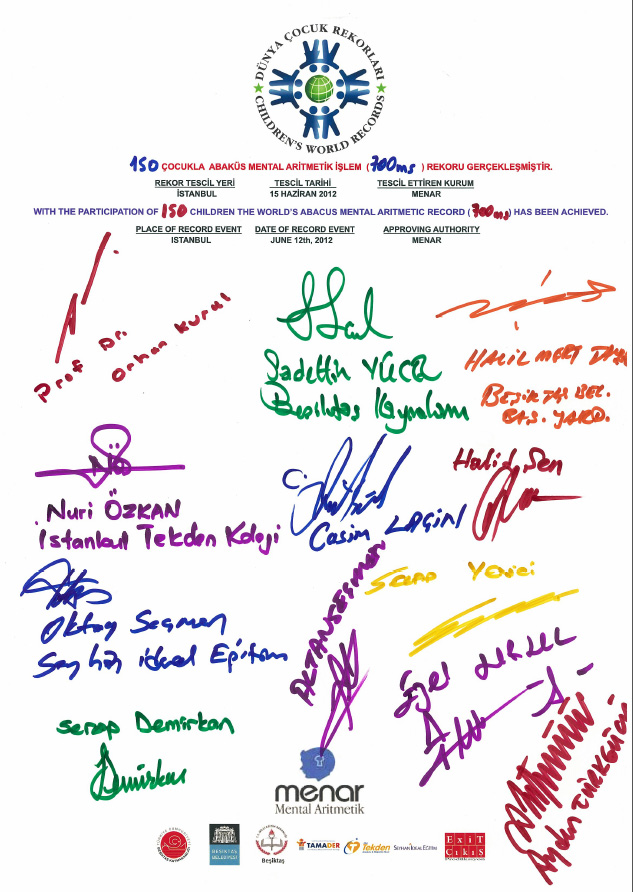 DÜNYA ÇOCUK REKORLARI
CHILDREN'S WORLD RECORDS
150 ÇOCUKLA ABAKÜS MENTAL ARİTMETİK İŞLEM (700ms) REKORU GERÇEKLEŞMİŞTİR.
REKOR TESCİL YERİ TESCİL TARİHİ TESCİL ETTİREN KURUM
İSTANBUL 15 HAZİRAN 2012 MENAR
WITH THE PARTICIPATION OF 150 CHILDREN THE WORLD'S ABACUS MENTAL ARITMETIC RECORD (700ms) HAS BEEN ACHIEVED.
PLACE OF RECORD EVENT DATE OF RECORD EVENT APPROVING AUTHORITY
ISTANBUL JUNE 12th, 2012 MENAR
Prof Dr.
Orhan Kural
Sadettin YÜCEL
Beşiktaş Kaymakamı
HALİL MERT
BEŞİKTAŞ BEL.
BAŞ. YARD.
Nuri ÖZKAN
İstanbul Tekden Koleji
Casim LAÇİN
Halid Şen
Oktay Seçmen
Seyhan ideal Eğitim
ALTAN SEÇMEN
Serap
Serap Demirkan
Aydın TÜRKGÜCÜ
menar
Mental Aritmetik
BEŞİKTAŞ
BELEDİYESİ
Beşiktaş
TAMADER
Tekden
SEYHAN İDEAL EĞİTİM
EXiT
ÇIKIŞ